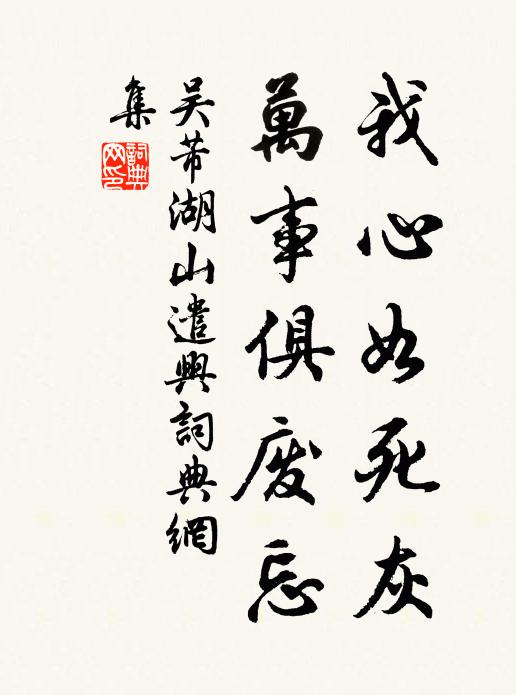 我心如死灰
萬事俱廢忘
吴芾湖山遣興詞典網
集
詞典
网印